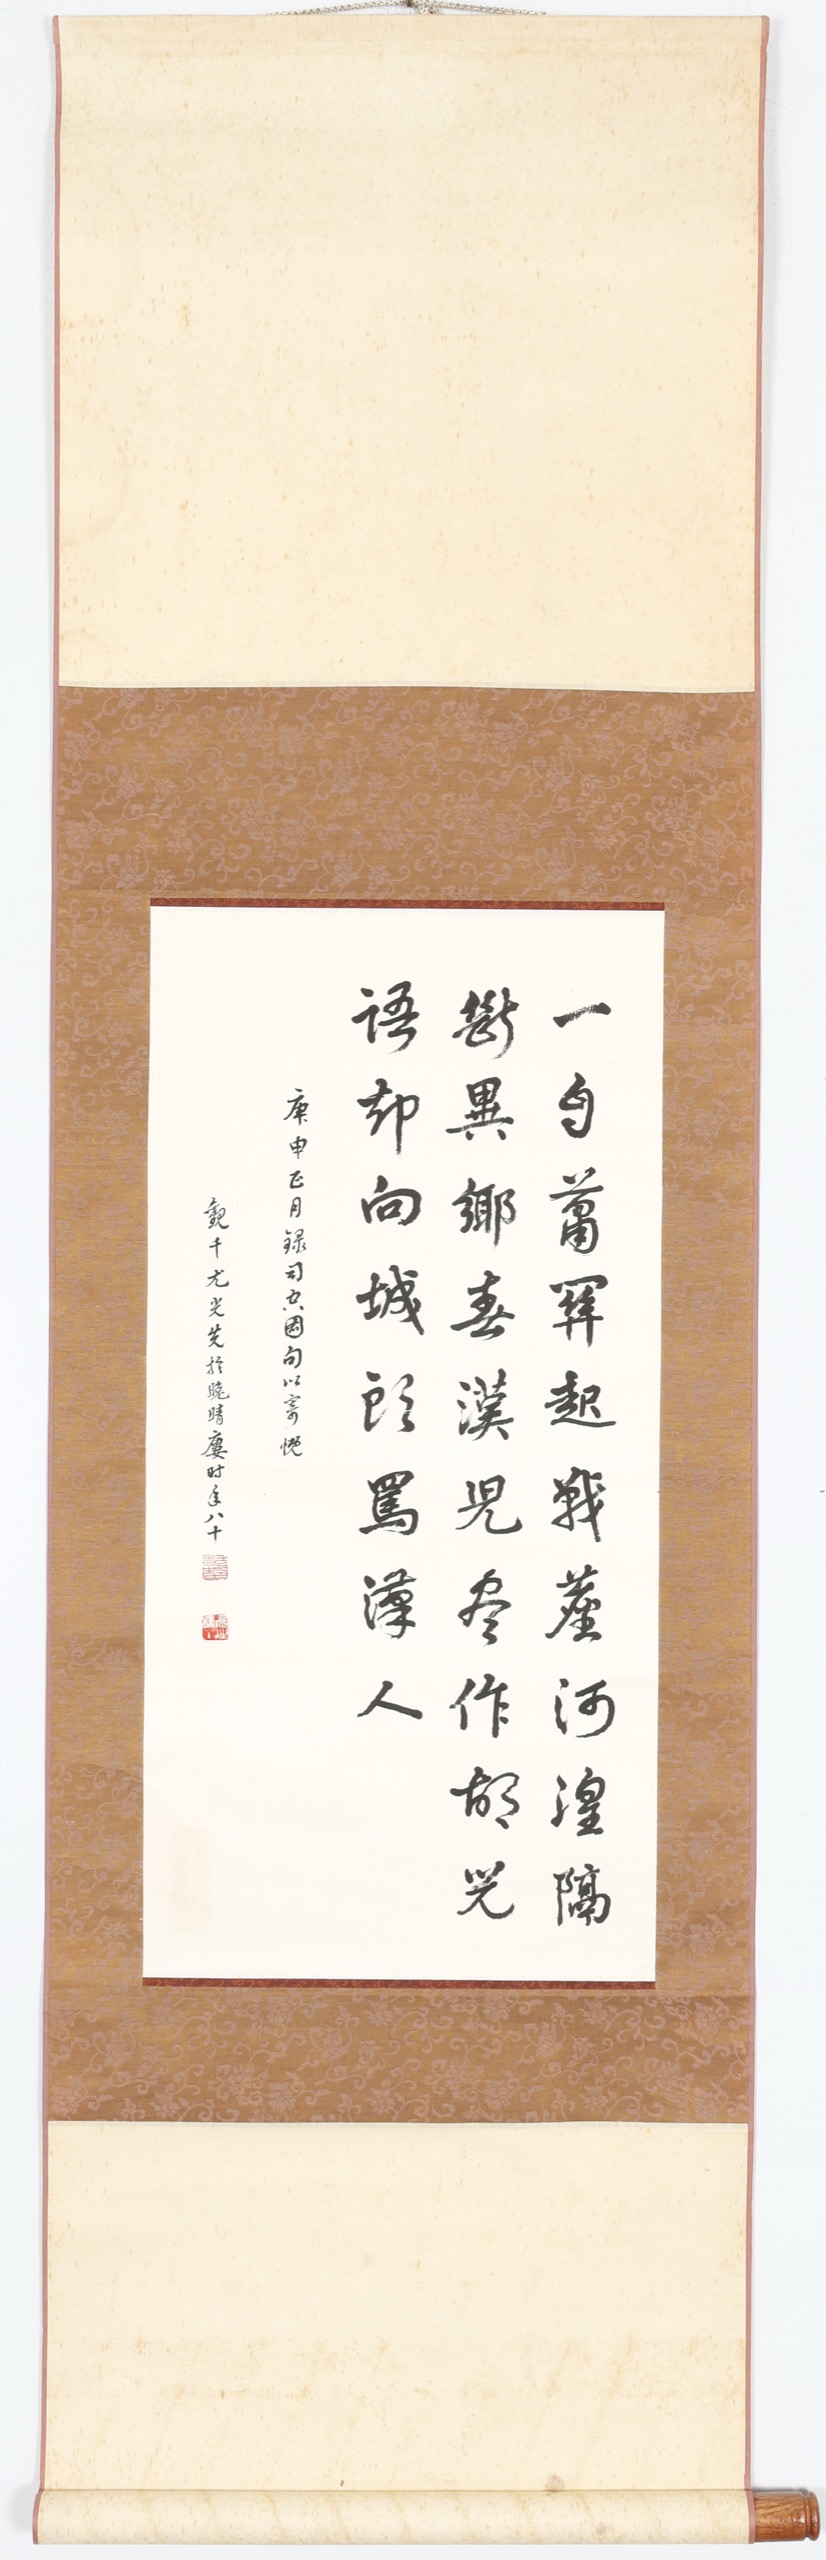 一自蕭關起戰塵河湟隔
斷異鄉春漢兒盡作胡兒
語却向城頭罵漢人
庚申正月録司空圖句以寄慨
觀千尤光先於晚晴廔时年八十